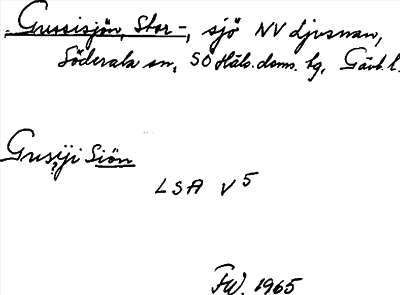 Gussisjön, Stor-, sjö NV Ljusnan,
Söderala sn, SO Häls. doms. hg, Gävb. l.
Gusiji Siön
LSA V 5
FW. 1965